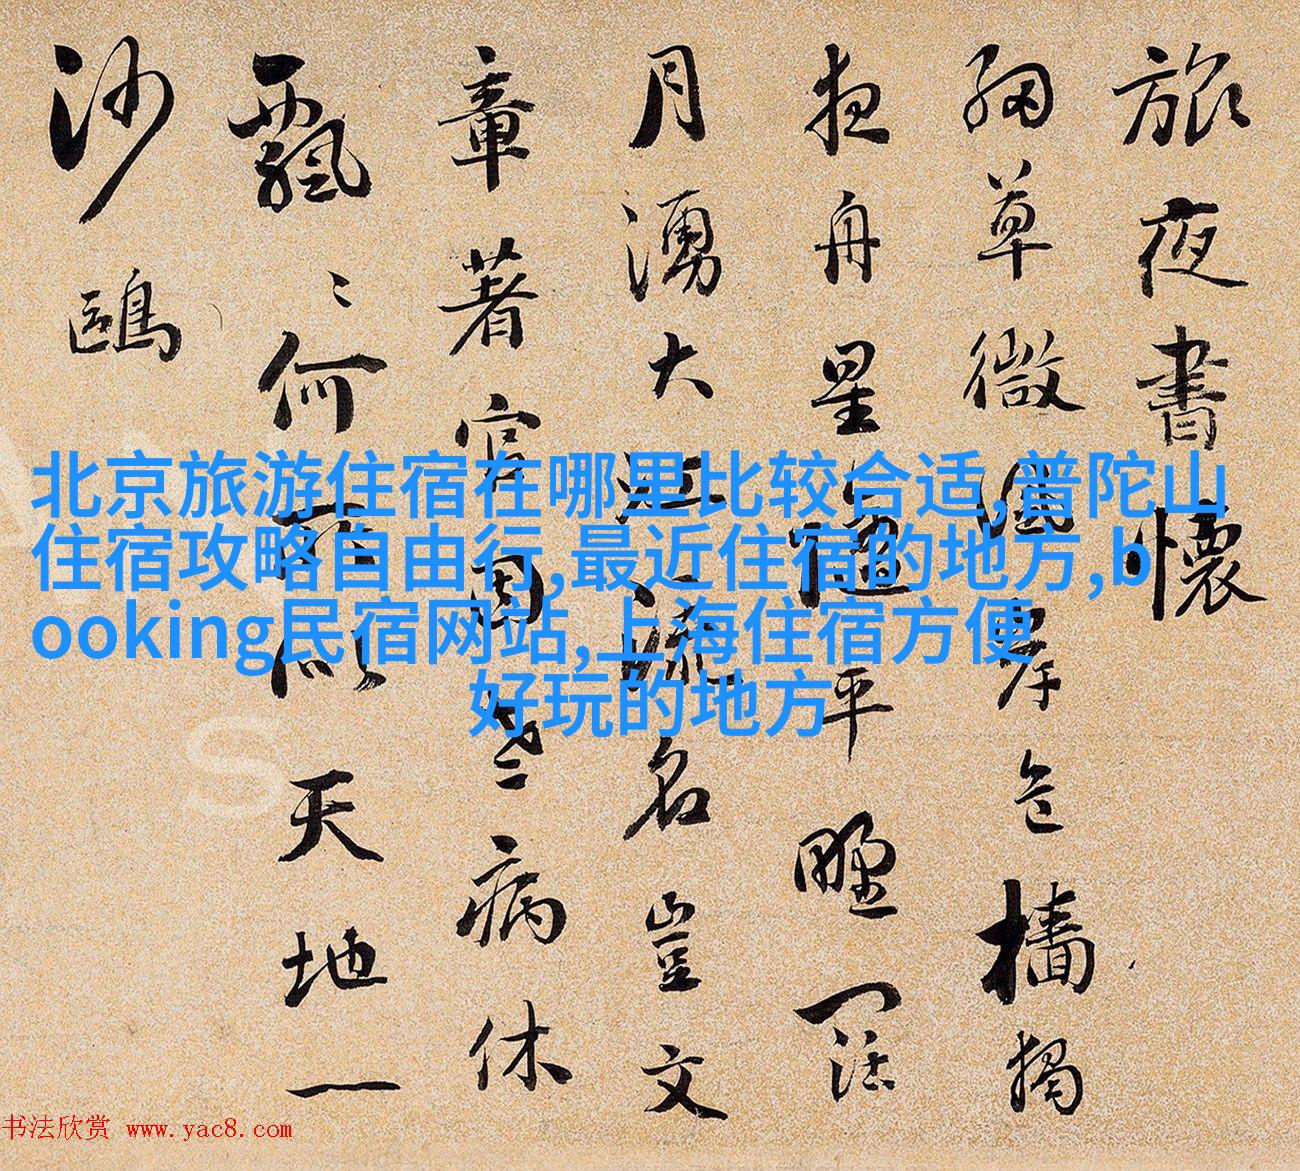 旅夜書懷
細草微風岸危檣獨
夜舟星隨平野闊
月湧大江流名豈文
章著官因老病休
飄〻何所似天地一
沙鷗
北京旅游住宿在哪里比较合适,普陀山
住宿攻略自由行,最近住宿的地方,b
ooking民宿网站,上海住宿方便
好玩的地方
书法欣赏 www.yac8.com